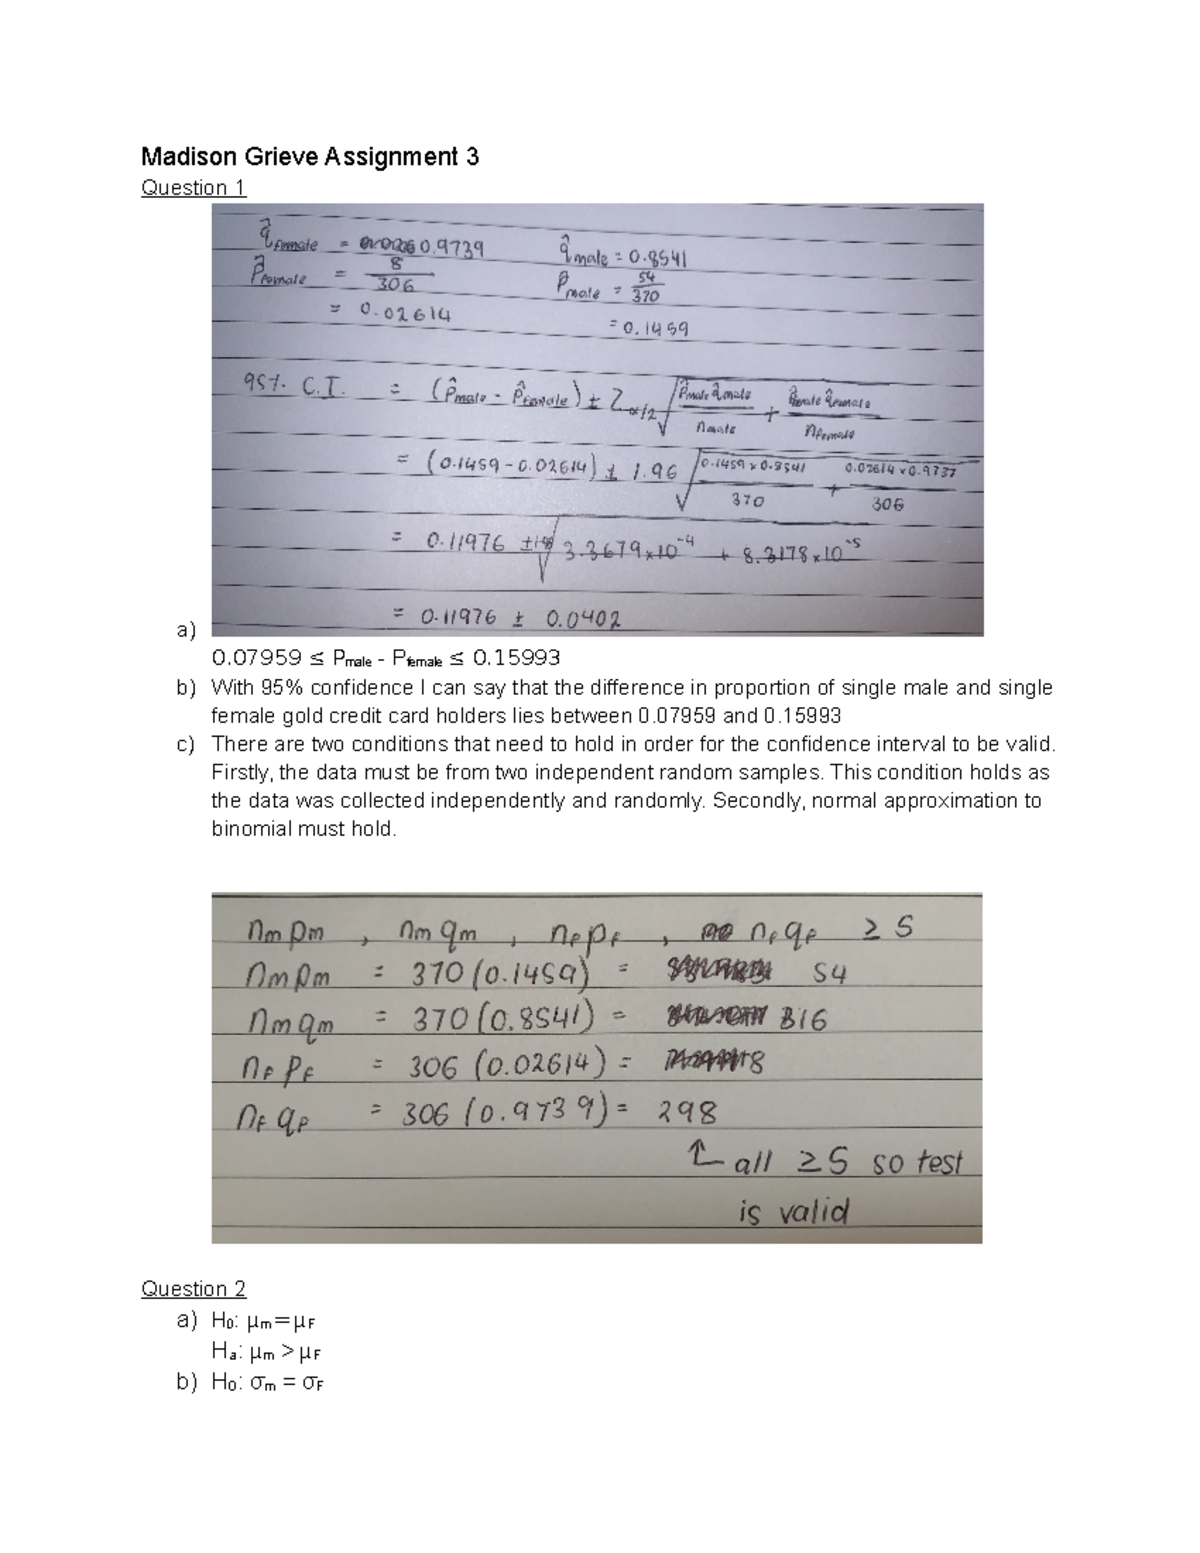 Madison Grieve Assignment 3
Question 1
q̂female = 0.9739 q̂male = 0.8541
p̂female = 8/306 p̂male = 54/370
= 0.02614 = 0.1459
95% C.I. = (p̂male - p̂female) ± Zα/2 √(p̂male q̂male / nmale + p̂female q̂female / nfemale)
= (0.1459 - 0.02614) ± 1.96 √(0.1459 x 0.8541 / 370 + 0.02614 x 0.9737 / 306)
= 0.11976 ± √(3.3679 x 10⁻⁴ + 8.3178 x 10⁻⁵)
= 0.11976 ± 0.0402
a)
0.07959 ≤ Pmale - Pfemale ≤ 0.15993
b) With 95% confidence I can say that the difference in proportion of single male and single
female gold credit card holders lies between 0.07959 and 0.15993
c) There are two conditions that need to hold in order for the confidence interval to be valid.
Firstly, the data must be from two independent random samples. This condition holds as
the data was collected independently and randomly. Secondly, normal approximation to
binomial must hold.
nm pm , nm qm , nF pF , nF qF ≥ 5
nm pm = 370 (0.1459) = 54
nm qm = 370 (0.8541) = 316
nF pF = 306 (0.02614) = 8
nF qF = 306 (0.9739) = 298
↑ all ≥ 5 so test
is valid
Question 2
a) H0: μm = μF
Ha: μm > μF
b) H0: σm = σF